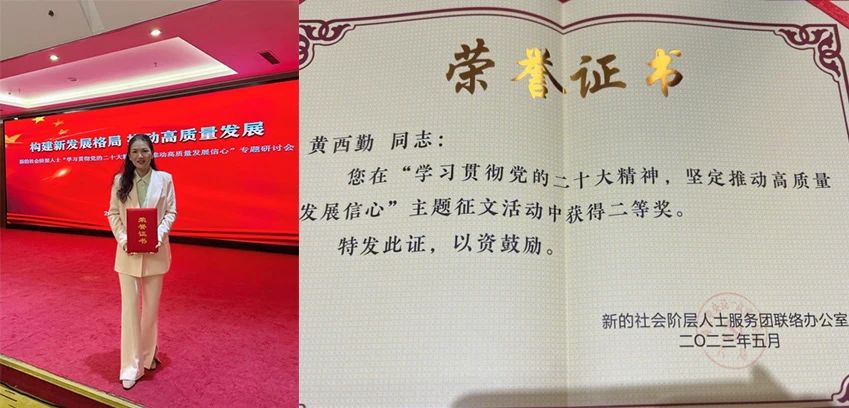 构建新发展格局 推动高质量发展
新的社会阶层人士“学习贯彻党的二十大精 推动高质量发展信心”专题研讨会
荣誉证书
荣誉证书
黄西勤 同志：
您在“学习贯彻党的二十大精神，坚定推动高质量
发展信心”主题征文活动中获得二等奖。
特发此证，以资鼓励。
新的社会阶层人士服务团联络办公室
二〇二三年五月